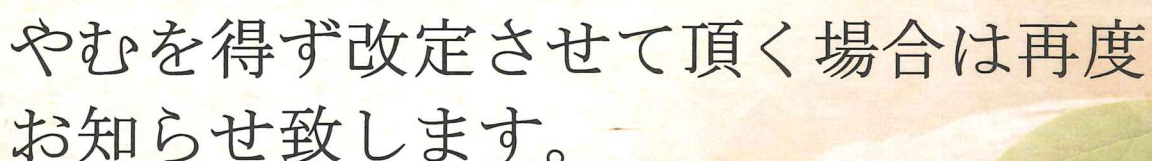 やむを得ず改定させて頂く場合は再度
お知らせ致します。